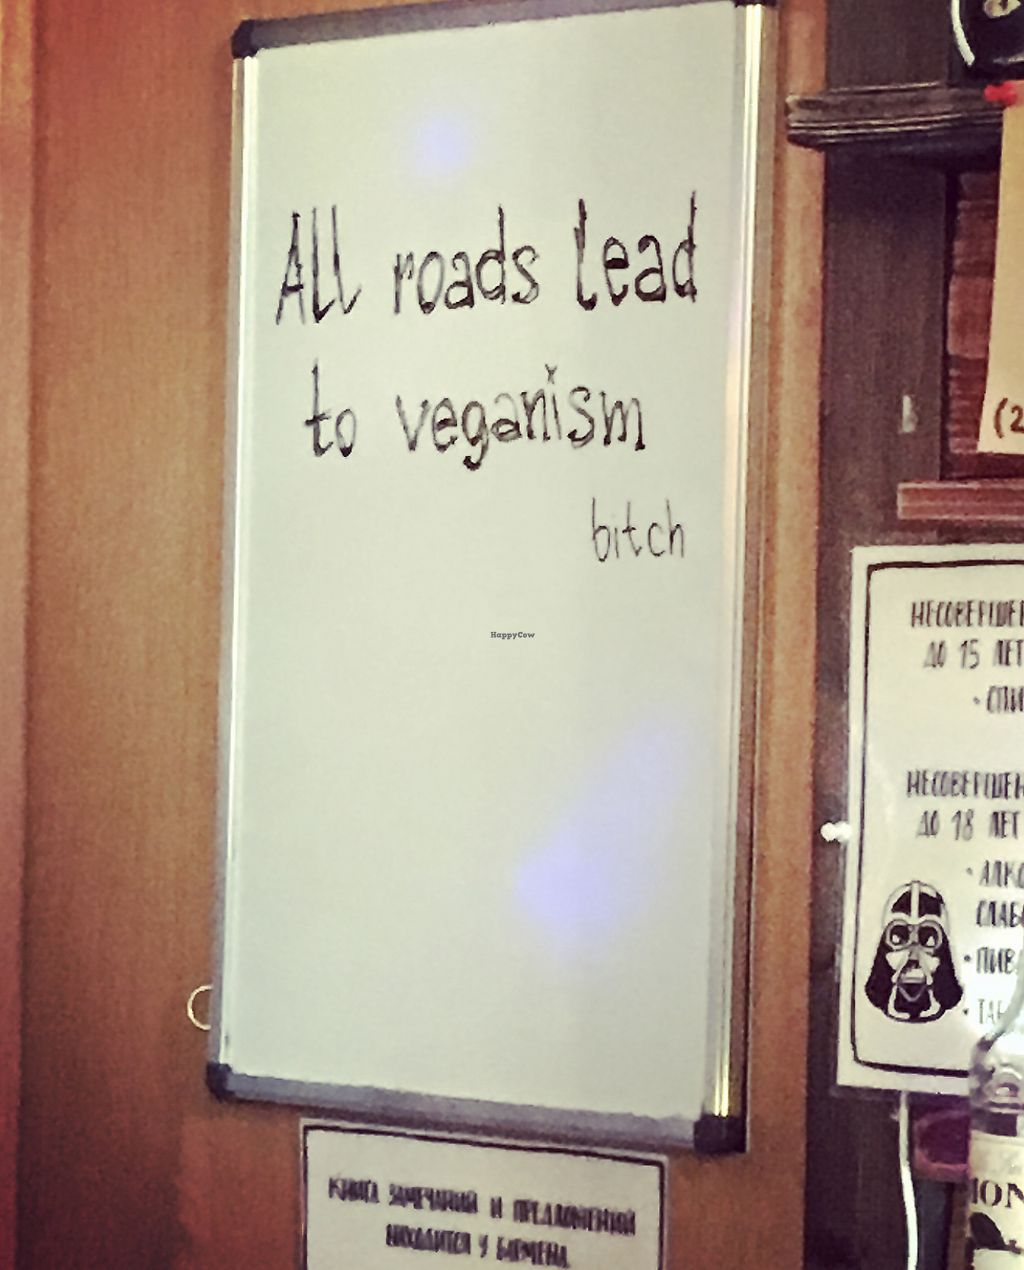 All roads lead
to veganism
bitch
HappyCow
(2
НЕСОВЕРШЕН
ДО 15 ЛЕТ
НЕСОВЕРШЕН
ДО 18 ЛЕТ
КНИГА ЗАМЕЧАНИЙ И ПРЕДЛОЖЕНИЙ
НАХОДИТСЯ У БАРМЕНА